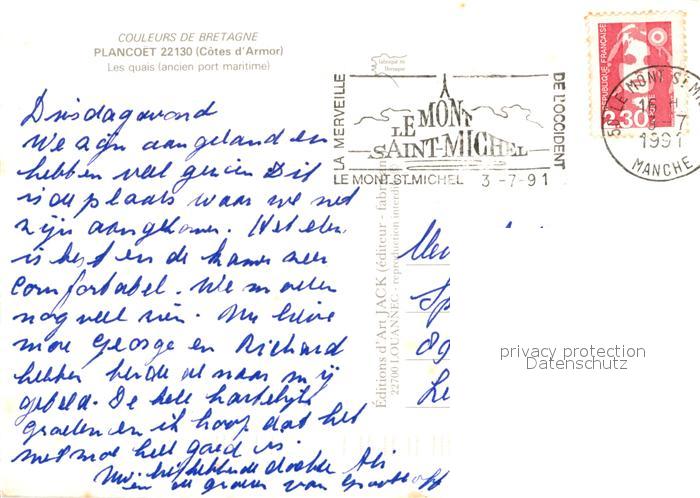 COULEURS DE BRETAGNE
PLANCOET 22130 (Côtes d'Armor)
Les quais (ancien port maritime)
fabriqué en
Bretagne
LA MERVEILLE
DE L'OCCIDENT
LE MONT
SAINT-MICHEL
LE MONT.ST.MICHEL 3-7-91
RÉPUBLIQUE FRANÇAISE
2,30
50 LE MONT ST M
16 H
3-7
1991
MANCHE
Dinsdagavond
We zijn aangeland en
hebben veel gezien Dit
is de plaats waar we net
zijn aangekomen. Het eten
is best en de kamer zeer
comfortabel. We moeten
nog veel zien. Nu lieve
moe George en Richard
hebben beide al naar mij
gebeld. De hele hartelijke
groeten en ik hoop dat het
met moe heel goed is.
liefhebbende dochter
en de groeten van
Éditions d'Art JACK (éditeur - fabrican
22700 LOUANNEC - reproduction interdi
Mev
Sp
89
Le
privacy protection
Datenschutz